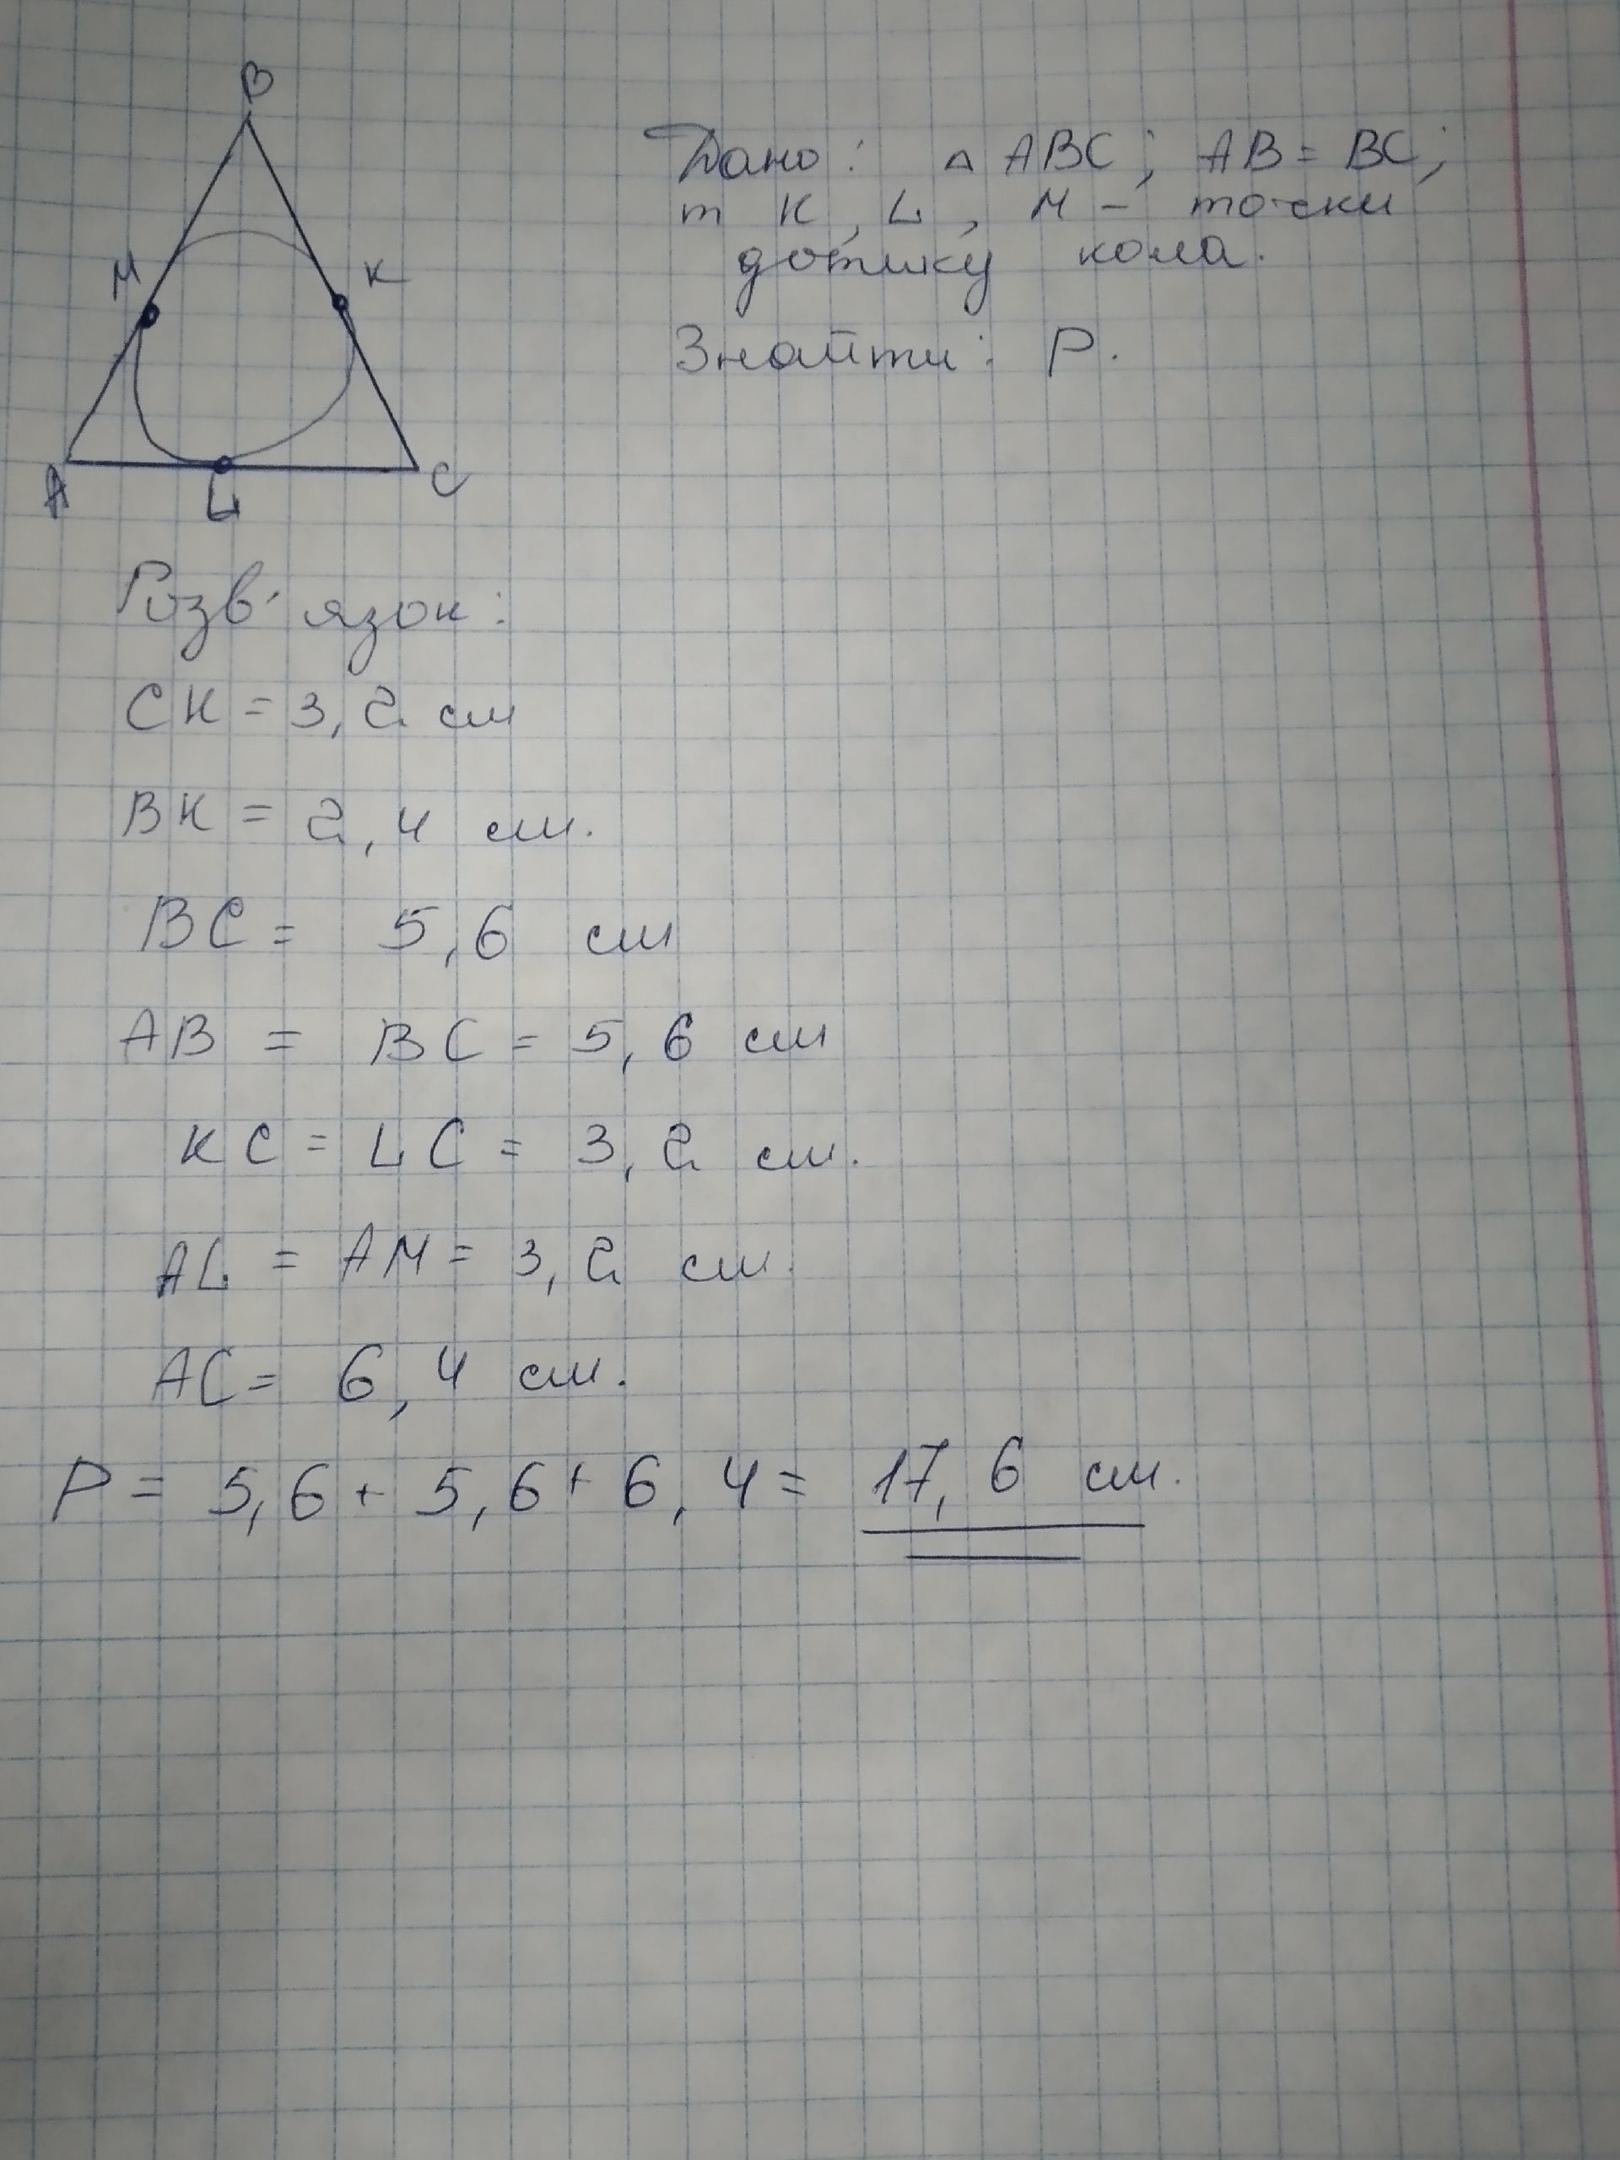 B
M
K
A
L
C
Дано: △ ABC; AB = BC;
т K, L, M – точки
дотику кола.
Знайти: P.
Розв'язок:
CK = 3,2 см
BK = 2,4 см.
BC = 5,6 см
AB = BC = 5,6 см
KC = LC = 3,2 см.
AL = AM = 3,2 см.
AC = 6,4 см.
P = 5,6 + 5,6 + 6,4 = 17,6 см.